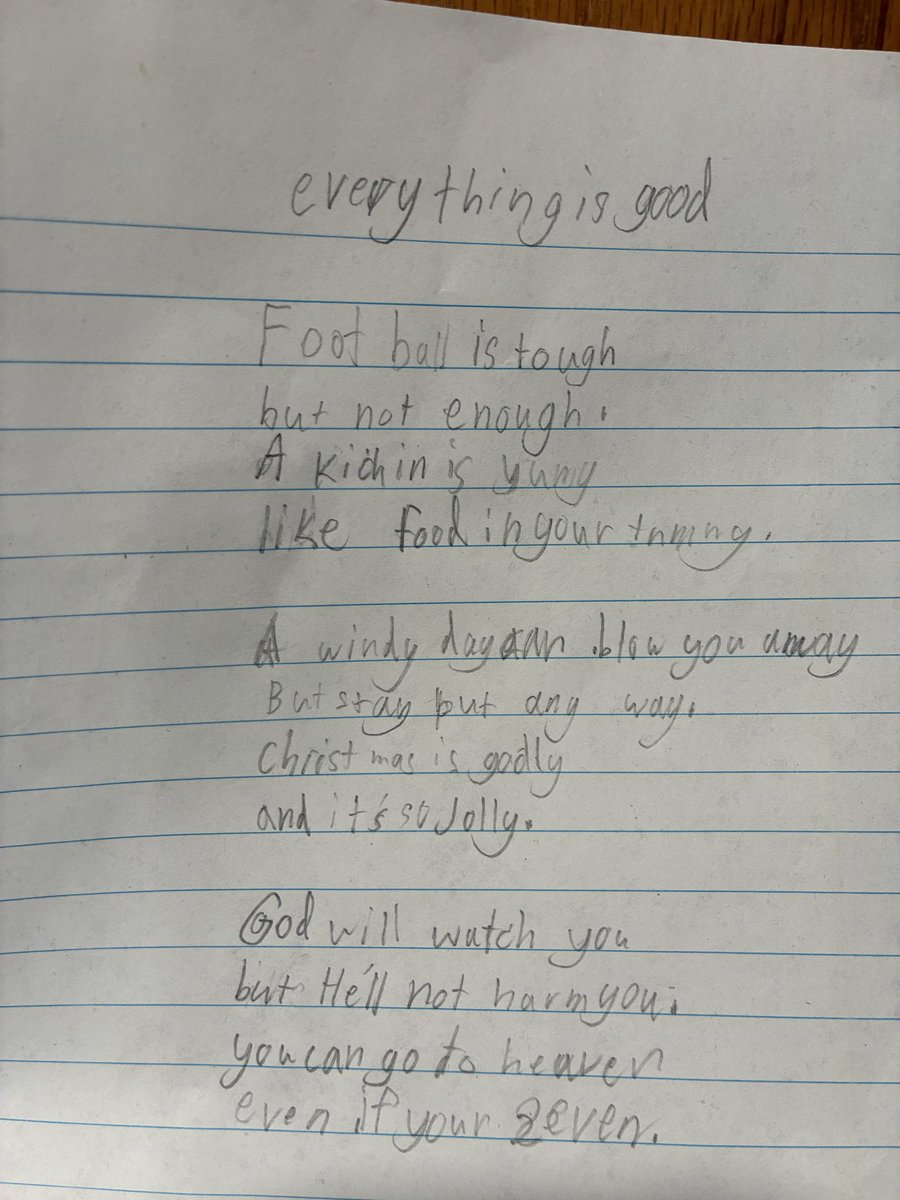 everything is good
Foot ball is tough
but not enough.
A kichin is yumy
like food in your tummy.
A windy day can blow you away
But stay put any way.
Christmas is godly
and it's so Jolly.
God will watch you
but He'll not harm you.
you can go to heaven
even if your seven.